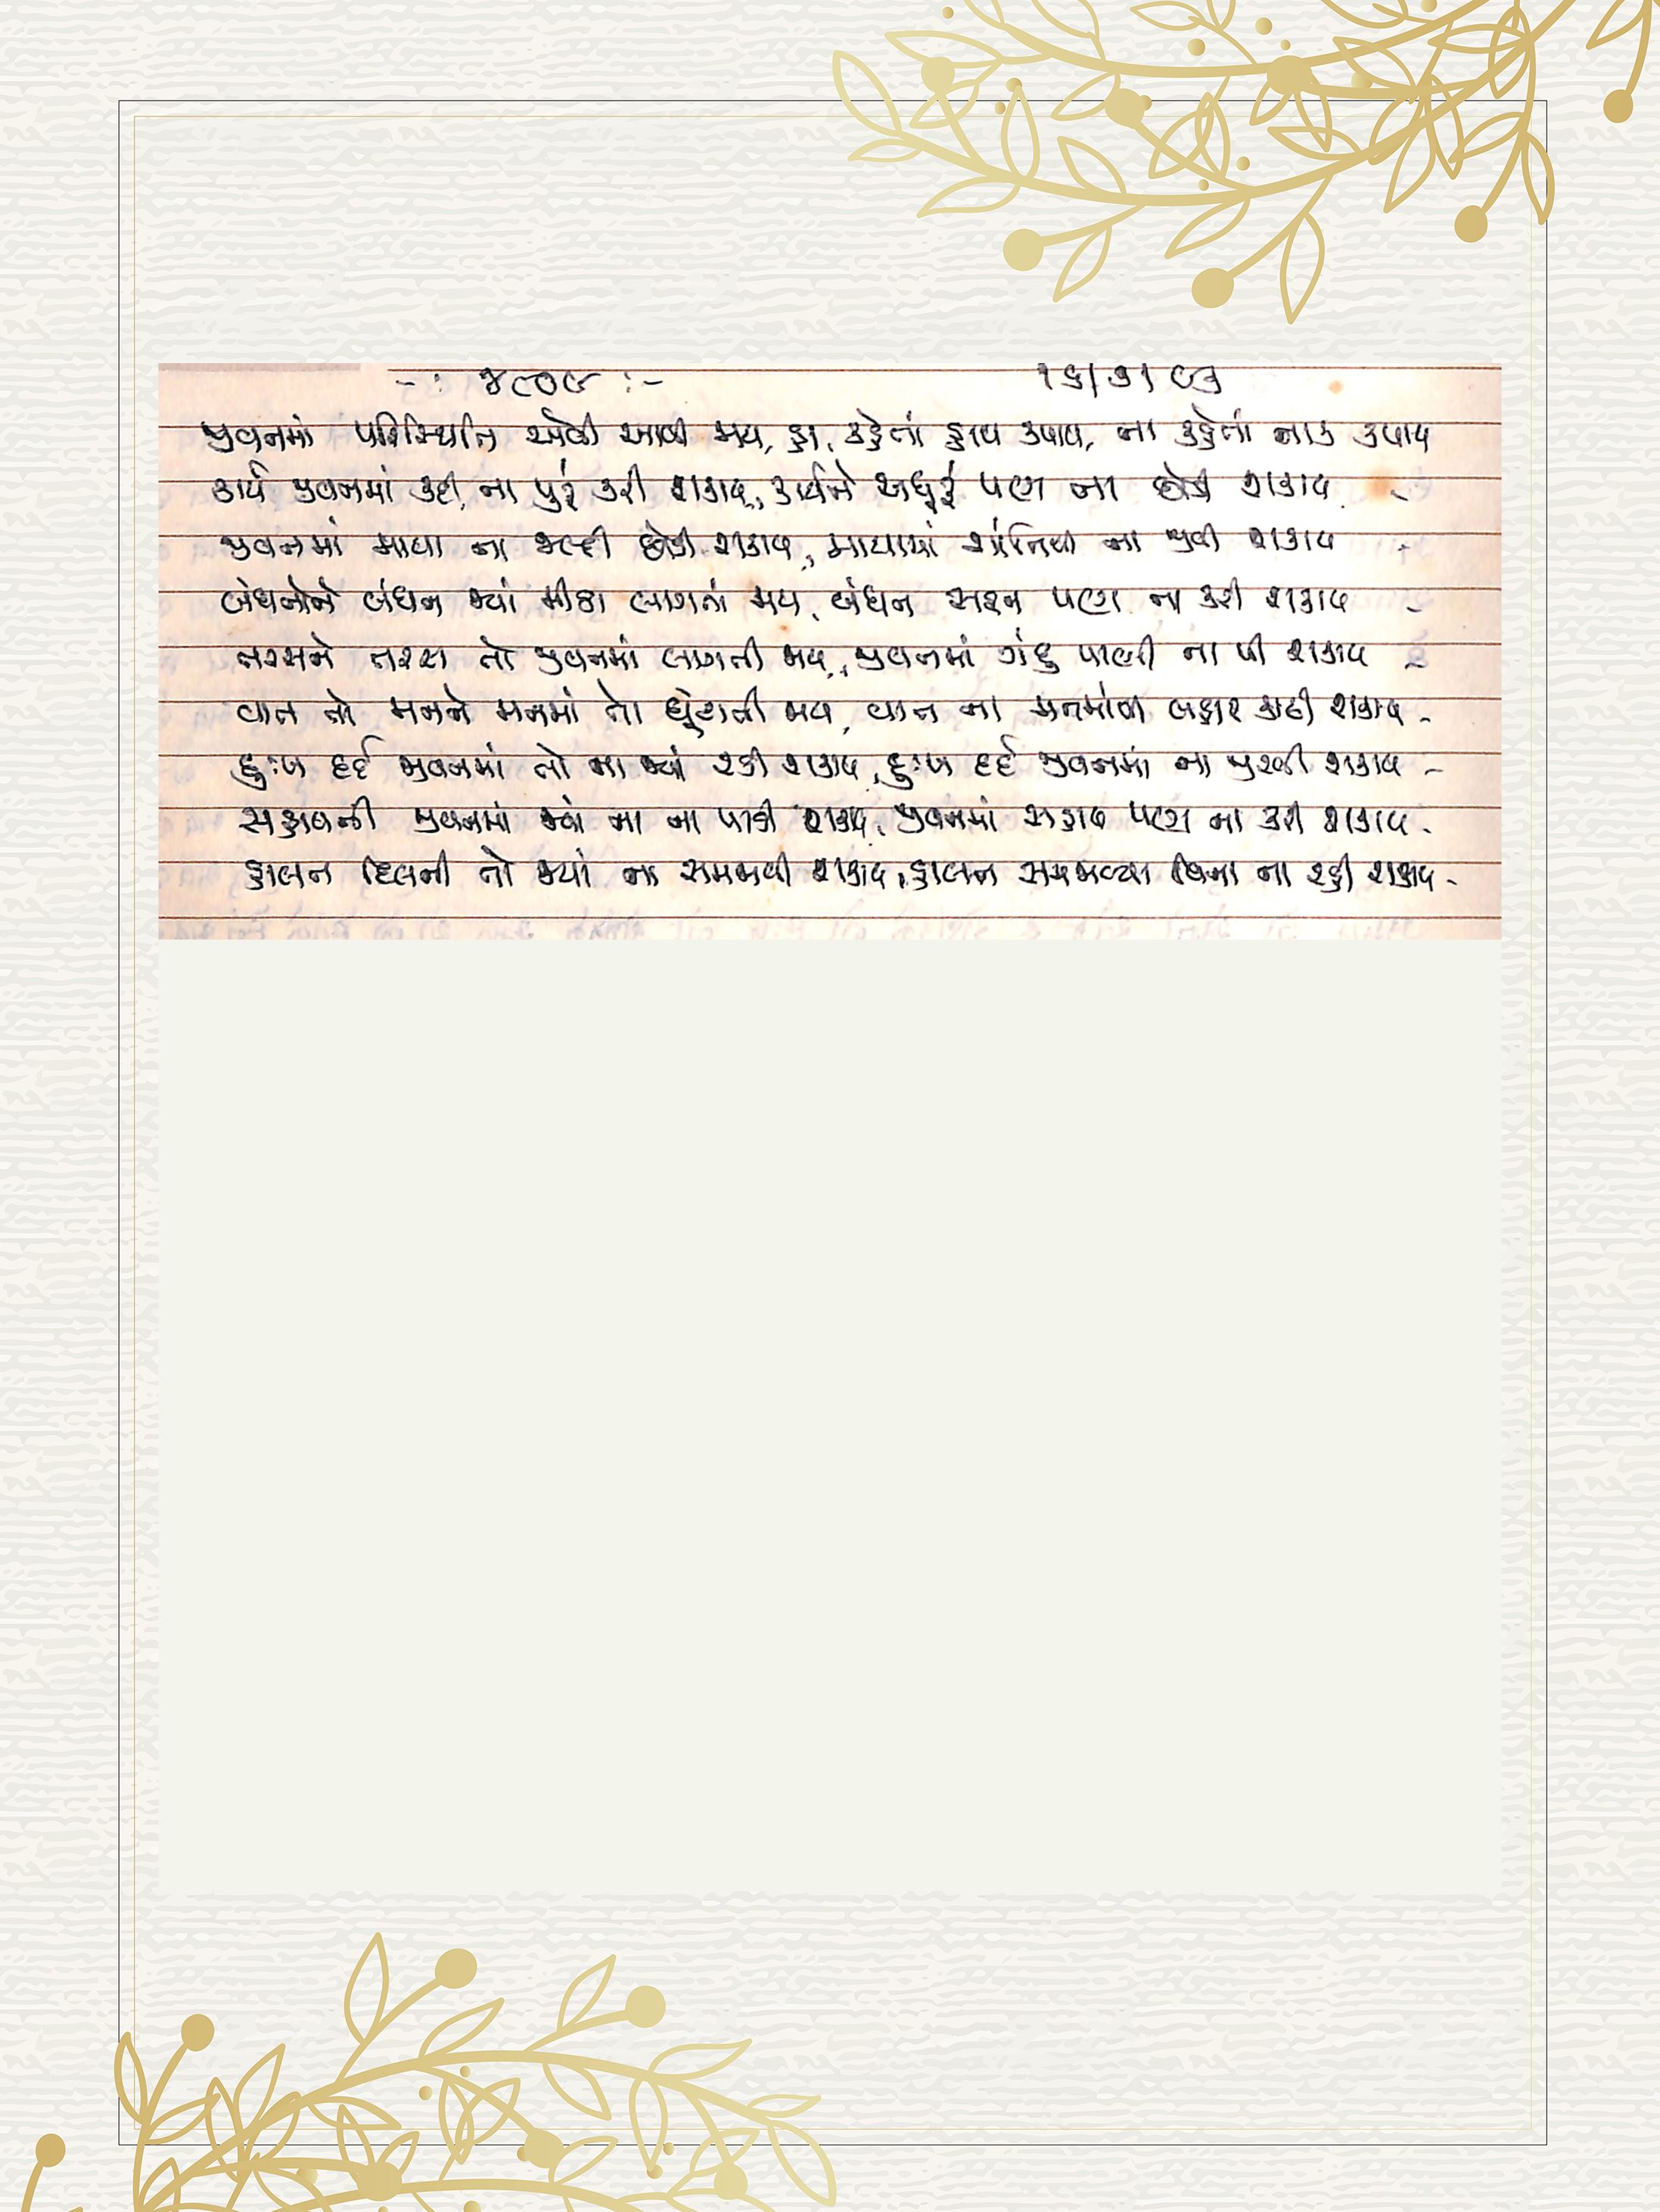 -: ૪૮૦૯ :- ૧૬/૭/૯૩
જીવનમાં પરિસ્થિતિ એવી આવી જાય, હા, કહેતાં હાથ કપાય, ના કહેતાં નાક કપાય
કાર્ય જીવનમાં કદી, ના પુરૂં કરી શકાય, કાર્યને અધૂરૂં પણ ના છોડી શકાય -
જીવનમાં માયા ના જલ્દી છોડી શકાય, માયામાં શાંતિથી ના જીવી શકાય -
બંધનોને બંધન જ્યાં મીઠા લાગતાં જાય, બંધન સહન પણ ના કરી શકાય -
તરસને તરસ તો જીવનમાં લાગતી જાય, જીવનમાં ગંદુ પાણી ના પી શકાય -
વાત તો મનને મનમાં તો ઘૂંટાતી જાય, વાત ના મનમાંથી બહાર કાઢી શકાય -
દુઃખ દર્દ જીવનમાં તો ના જ્યાં રડી શકાય, દુઃખ દર્દ જીવનમાં ના જીરવી શકાય -
સફાવની જીવનમાં જ્યાં ના ના પાડી શકાય, જીવનમાં સહાય પણ ના કરી શકાય -
હાલત દિલની તો જ્યાં ના સમજાવી શકાય, હાલત સમજાવ્યા વિના ના રહી શકાય -